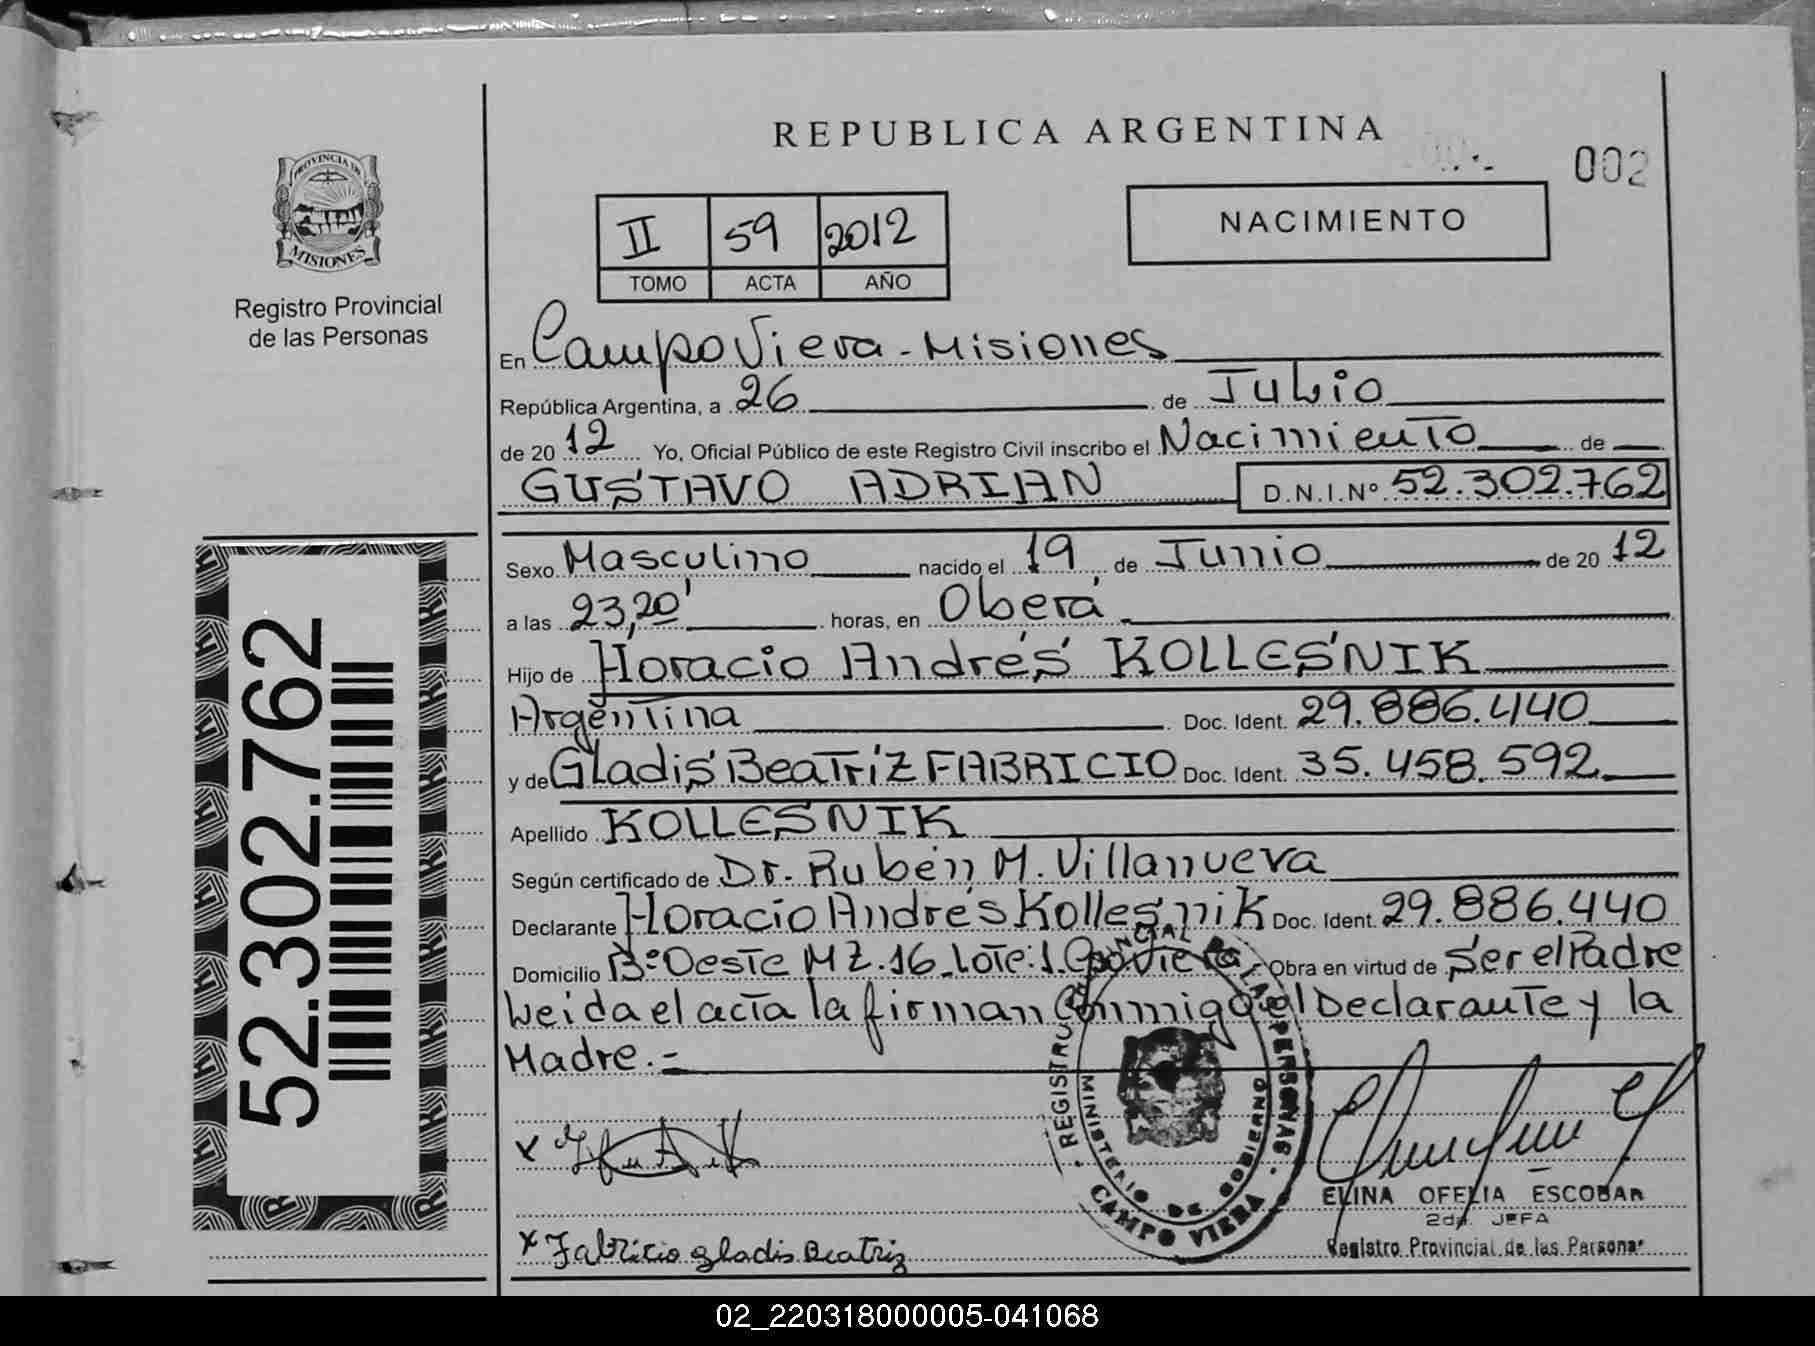 REPUBLICA ARGENTINA
002
PROVINCIA DE
MISIONES
Registro Provincial
de las Personas
II 59 2012
TOMO ACTA AÑO
NACIMIENTO
En Campo Viera - Misiones
República Argentina, a 26 de Julio
de 20 12 Yo, Oficial Público de este Registro Civil inscribo el Nacimiento de
GUSTAVO ADRIAN D.N.I.Nº 52.302.762
Sexo Masculino nacido el 19 de Junio de 20 12
a las 23,20' horas, en Oberá
Hijo de Horacio Andrés KOLLESNIK
Argentina Doc. Ident. 29.886.440
y de Gladis Beatriz FABRICIO Doc. Ident. 35.458.592
Apellido KOLLESNIK
Según certificado de Dr. Rubén M. Villanueva
Declarante Horacio Andrés Kollesnik Doc. Ident. 29.886.440
Domicilio Bº Oeste MZ.16 Lote:1 Cpo Viera Obra en virtud de Ser el Padre
Leida el acta la firman Conmigo el Declarante y la
Madre.-
52.302.762
REGISTRO PROVINCIAL DE LAS PERSONAS
MINISTERIO DE GOBIERNO
CAMPO VIERA
x
ELINA OFELIA ESCOBAR
2da. JEFA
Registro Provincial de las Personas
x Fabricio Gladis Beatriz
02_220318000005-041068